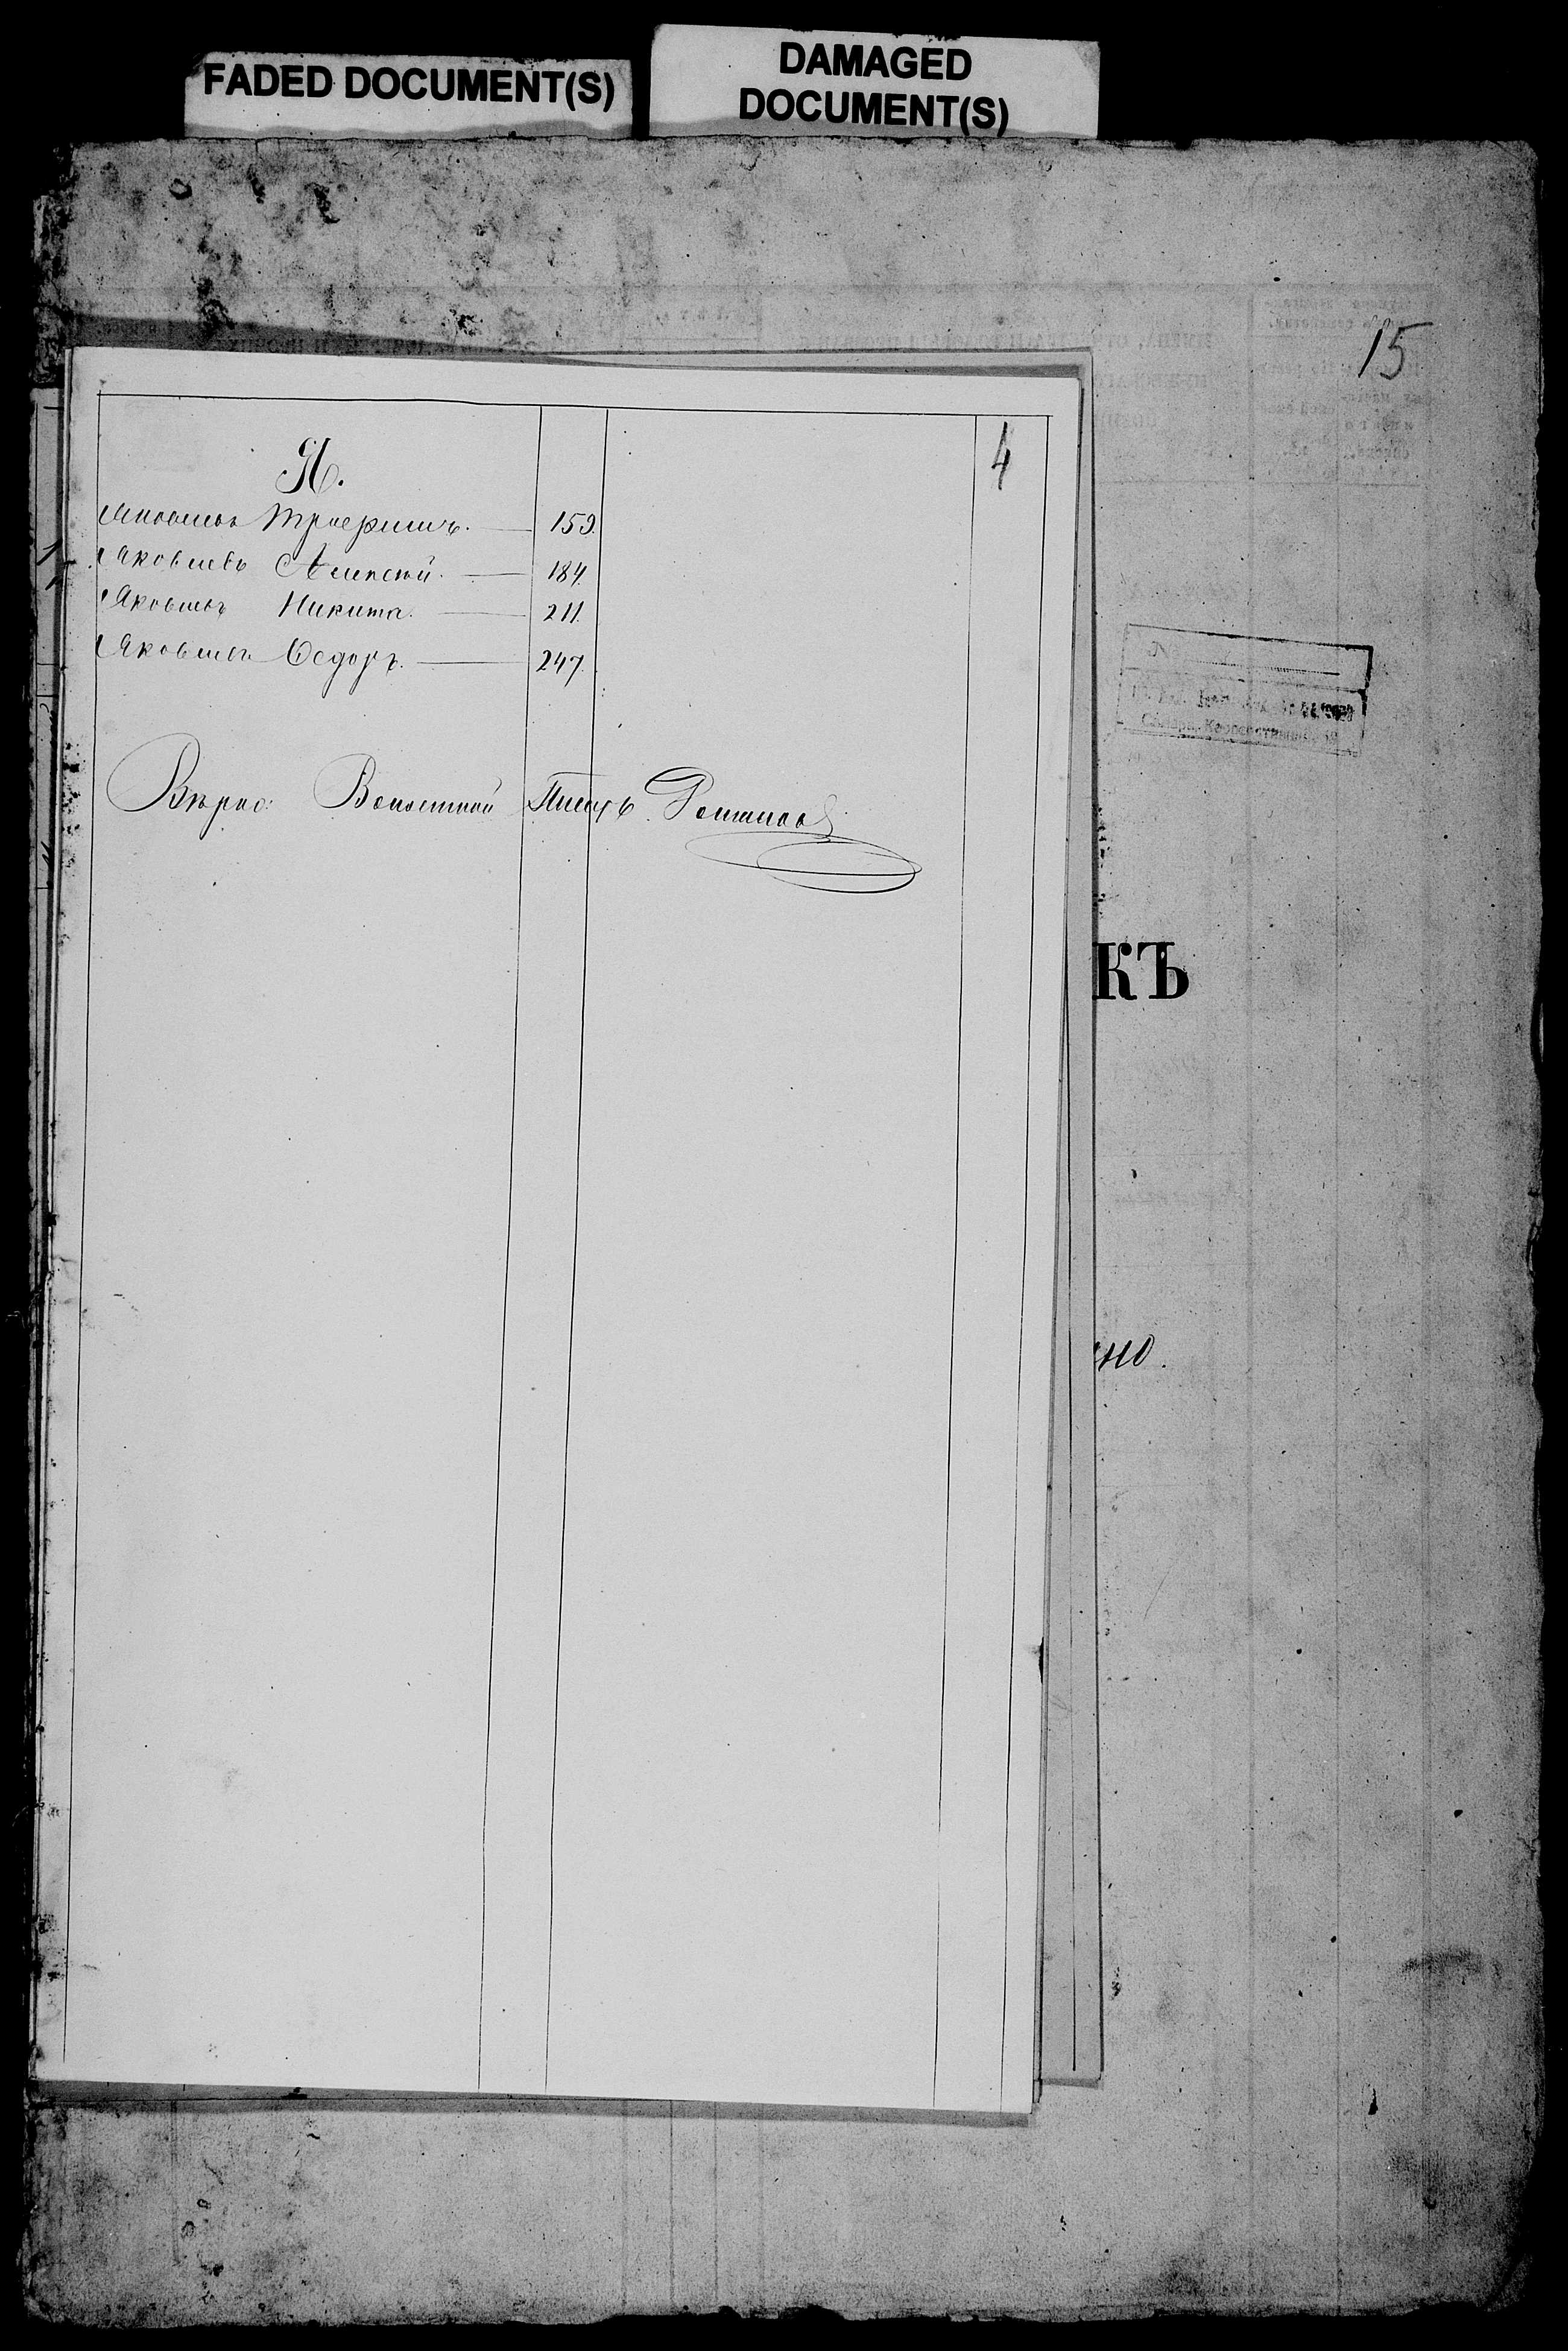 FADED DOCUMENT(S)
DAMAGED
DOCUMENT(S)
15
4
Я.
Яковлевъ 159.
Яковлевъ Алексѣй. 184
Яковлевъ Никита. 211.
Яковлевъ Ѳедоръ. 247.
Вѣрно: Волостной Писарь Романов
КЪ
но.